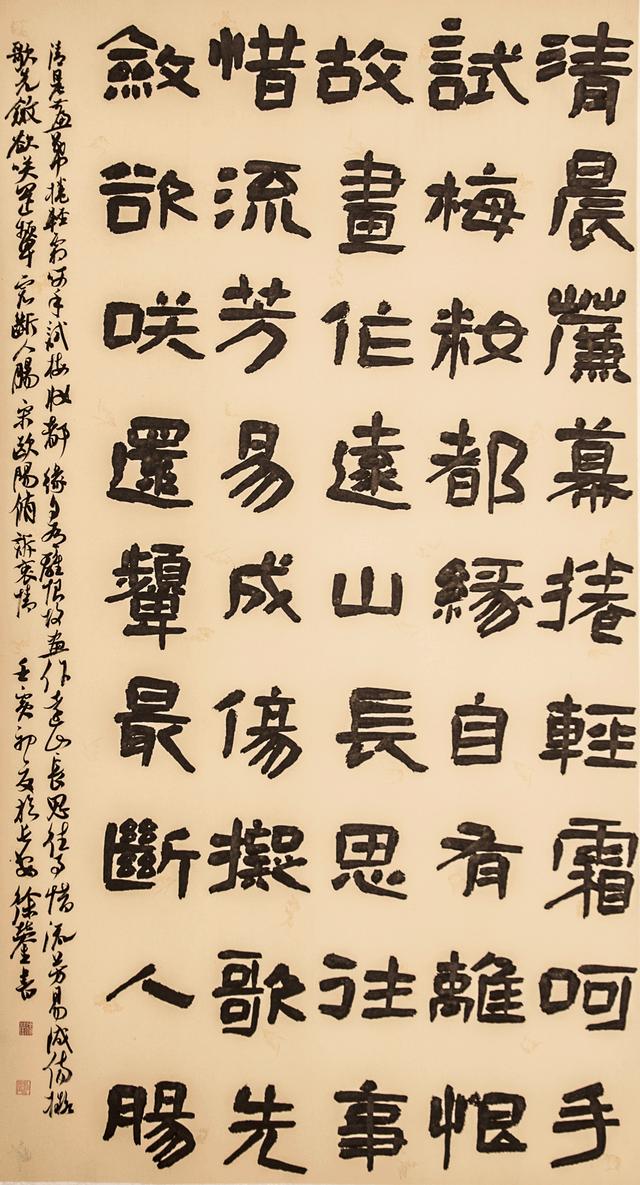 清晨簾幕捲輕霜呵手
試梅籹都緣自有離恨
故畫作遠山長思往事
惜流芳易成傷擬歌先
斂欲咲還顰最斷人腸
清晨簾幕捲輕霜呵手試梅妝都緣自有離恨故畫作遠山長思往事惜流芳易成傷擬
歌先斂欲咲還顰最斷人腸 宋歐陽脩訴衷情 壬寅初夏於長安 徐書